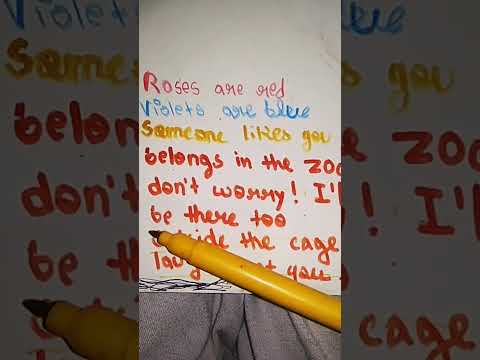 Roses are red
Violets are blue
Someone likes you
belongs in the zoo
don't worry! I'll
be there too
outside the cage
you